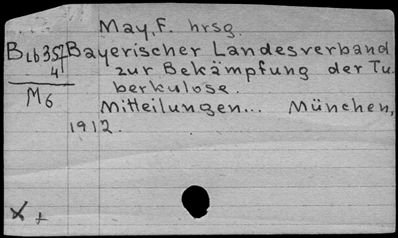 May, F. hrsg.
Blb357 Bayerischer Landesverband
4 zur Bekämpfung der Tu-
M6 berkulose.
Mitteilungen... München,
1912.